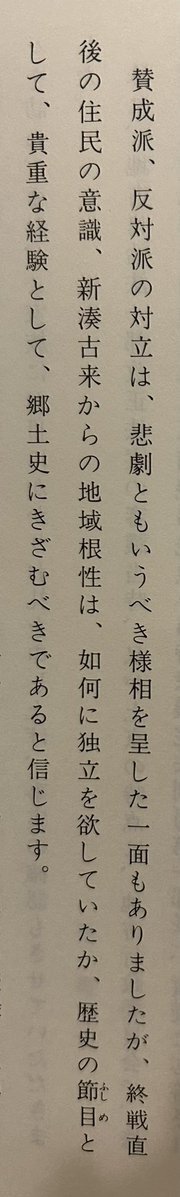 賛成派、反対派の対立は、悲劇ともいうべき様相を呈した一面もありましたが、終戦直
後の住民の意識、新湊古来からの地域根性は、如何に独立を欲していたか、歴史の節目と
ふしめ
して、貴重な経験として、郷土史にきざむべきであると信じます。